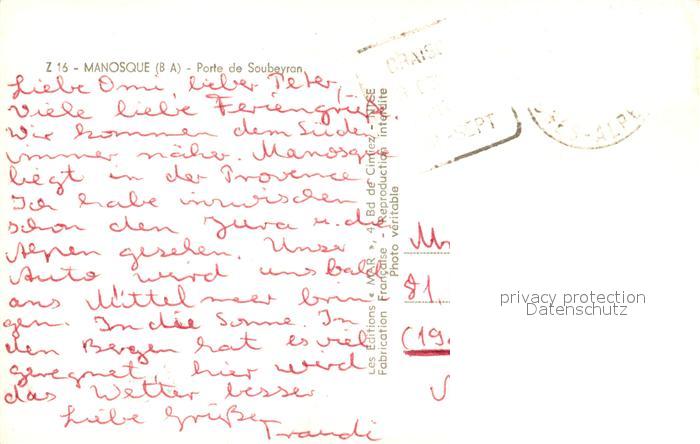 Z 16 - MANOSQUE (B A) - Porte de Soubeyran
Liebe Omi, lieber Peter,
Viele liebe Feriengrüße.
Wir kommen dem Süden
immer näher. Manosque
liegt in der Provence.
Ich habe inzwischen
schon den Jura u. die
Alpen gesehen. Unser
Auto wird uns bald
ans Mittelmeer brin
gen. In die Sonne. In
den Bergen hat es viel
geregnet, hier wird
das Wetter besser.
Liebe Grüße
Traudi
Les Editions « MAR », 4, Bd de Cimiez - NICE
Fabrication Française - Reproduction interdite
Photo véritable
SEPT
81.
(19
privacy protection
Datenschutz